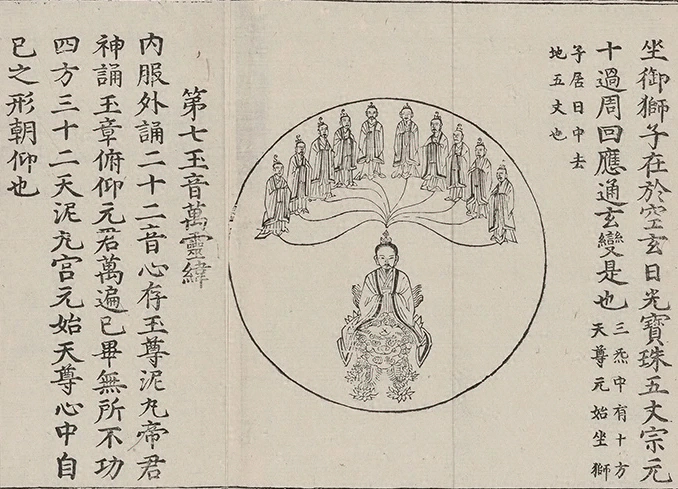 坐御獅子在於空玄日光寶珠五丈宗元
十過周回應通玄變是也
三炁中有十方
天尊元始坐獅
子居日中去
地五丈也
第七玉音萬靈緯
內服外誦二十二音心存玉尊泥丸帝君
神誦玉章俯仰元君萬遍已畢無所不功
四方三十二天泥丸宮元始天尊心中自
已之形朝仰也